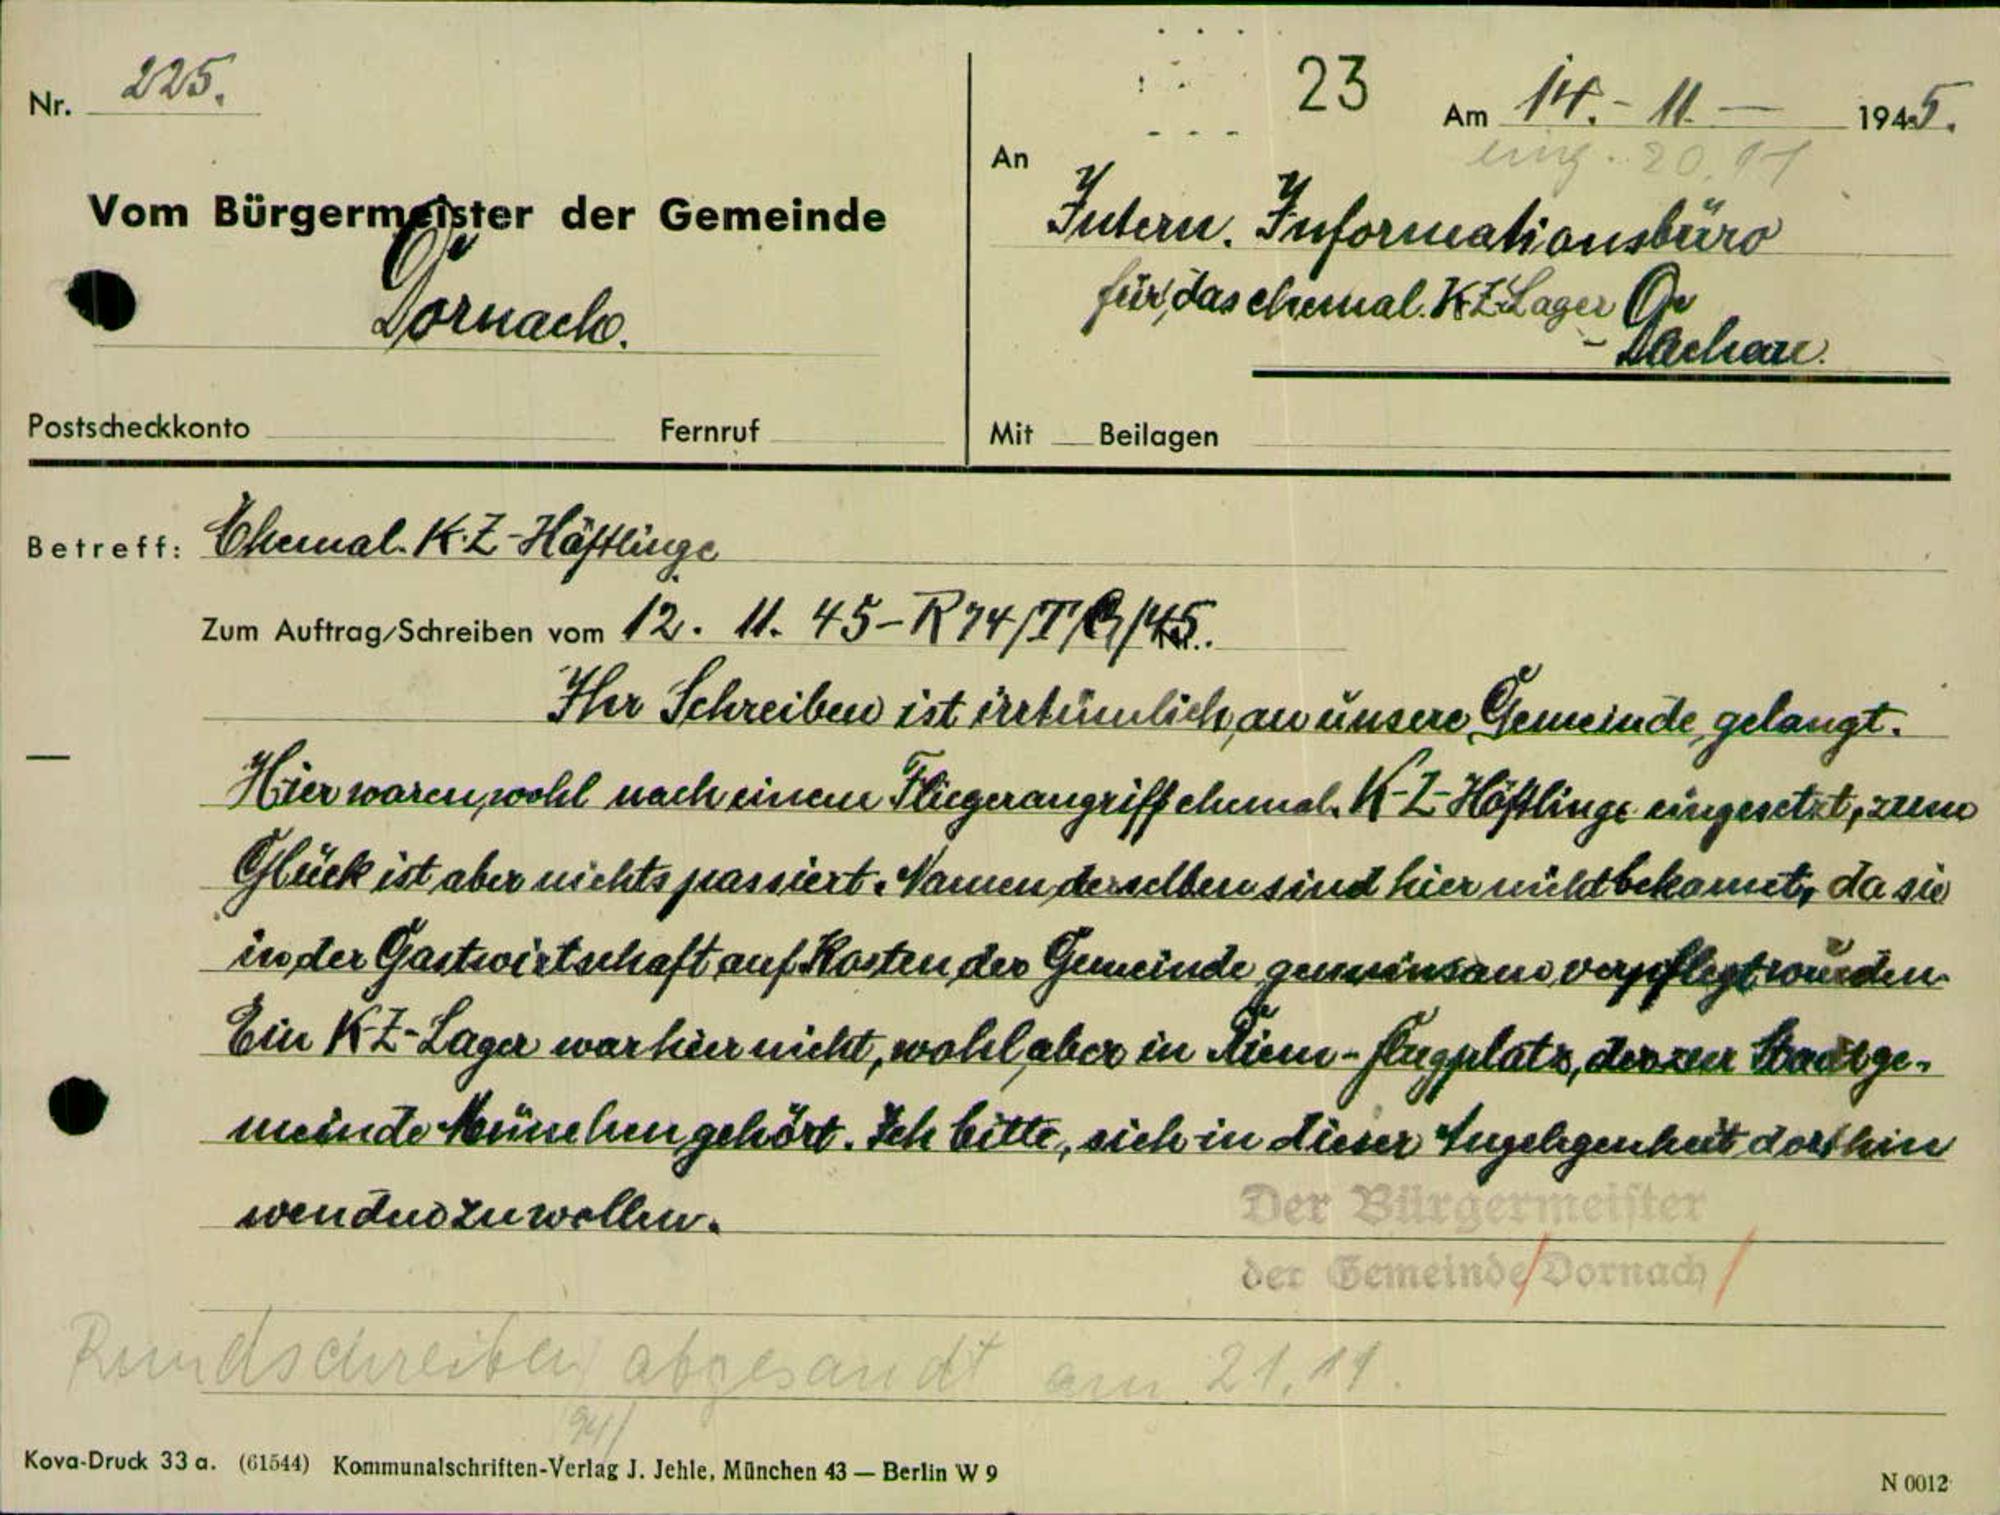 Nr. 225.
23
Am 14. - 11. — 1945.
eing. 20.11
Vom Bürgermeister der Gemeinde
Dornach.
An
Intern. Informationsbüro
für das ehemal. KZ-Lager
- Dachau.
Postscheckkonto Fernruf
Mit Beilagen
Betreff: Ehemal. K.Z-Häftlinge
Zum Auftrag/Schreiben vom 12. 11. 45 - R74/T/ /45.
Ihr Schreiben ist irrtümlich an unsere Gemeinde gelangt.
Hier waren wohl nach einem Fliegerangriff ehemal. K-Z-Häftlinge eingesetzt, zum
Glück ist aber nichts passiert. Namen derselben sind hier nicht bekannt, da sie
in der Gastwirtschaft auf Kosten der Gemeinde gemeinsam verpflegt wurden.
Ein KZ-Lager war hier nicht, wohl aber in Riem-Flugplatz, der zur Stadtge-
meinde München gehört. Ich bitte, sich in dieser Angelegenheit dorthin
wenden zu wollen.
Der Bürgermeister
der Gemeinde Dornach
Rundschreiben abgesandt am 21.11.
Kova-Druck 33 a. (61544) Kommunalschriften-Verlag J. Jehle, München 43 — Berlin W 9
N 0012